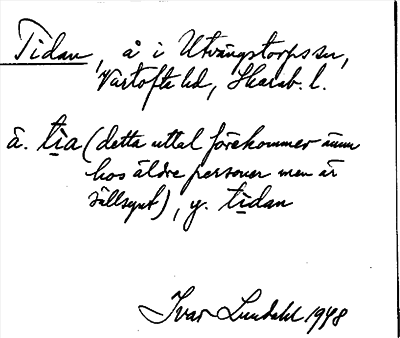 Tidan, å i Utvängstorps sn,
Vartofta hd, Skarab. l.
ä. tia (detta uttal förekommer ännu
hos äldre personer men är
sällsynt), y. tidan
Ivar Lundahl 1948